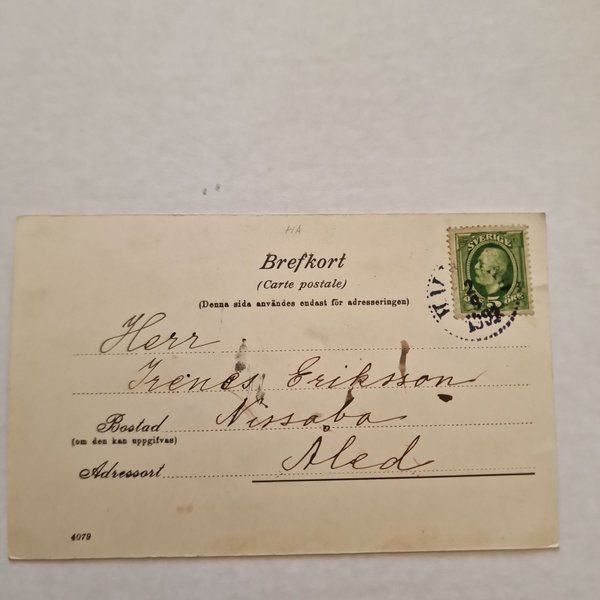 HA
SVERIGE
5 ÖRE
Brefkort
(Carte postale)
(Denna sida användes endast för adresseringen)
Herr
Irenes Eriksson
Bostad Nissabo
(om den kan uppgifvas)
Adressort Åled
4079